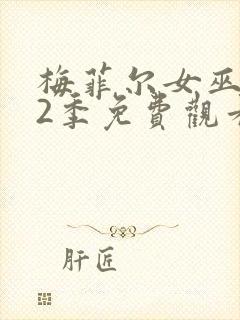 梅菲尔女巫
2季免費觀看
肝匠